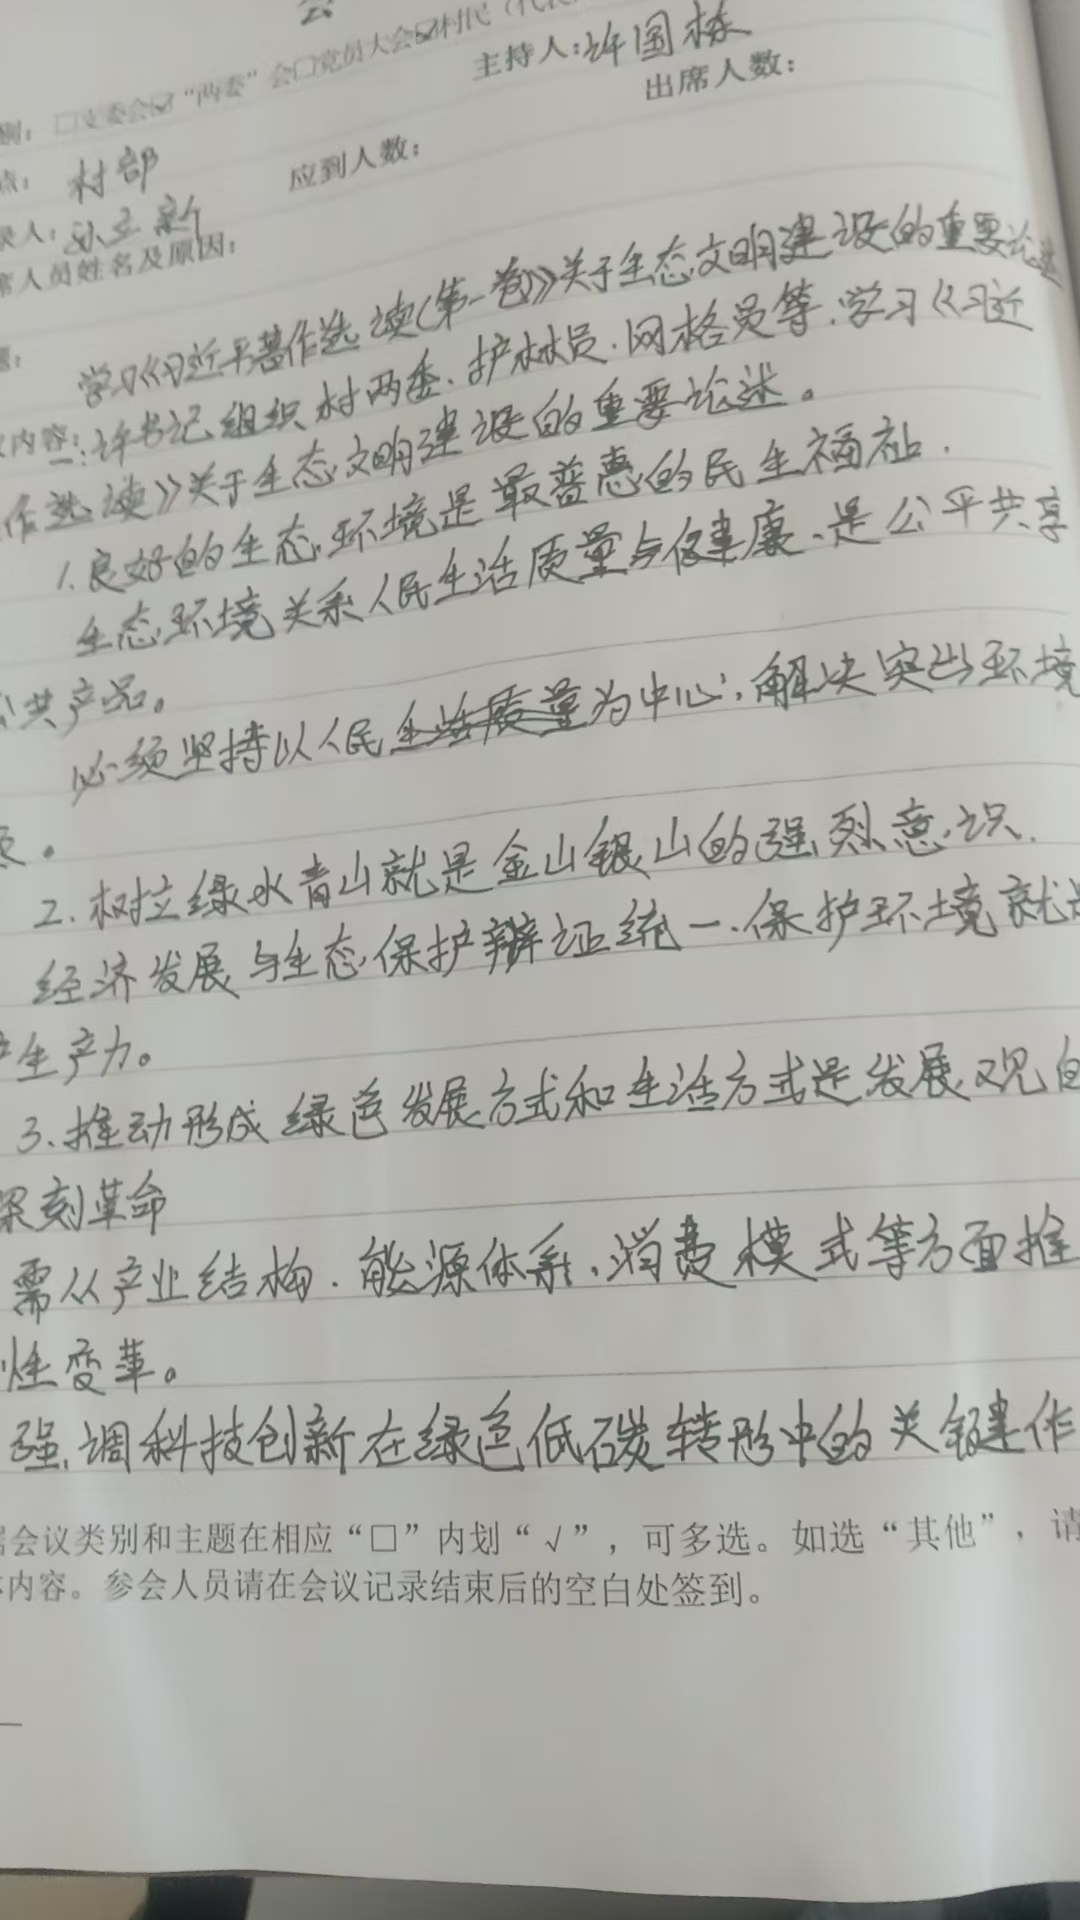 会
别：□支委会☑“两委”会□党员大会☑村民（代表
主持人：许国栋
点：村部
应到人数：
出席人数：
录人：孙立新
席人员姓名及原因：
题：
学习《习近平著作选读（第一卷）》关于生态文明建设的重要论述
内容：一：许书记组织村两委、护林员、网格员等，学习《习近
作选读》关于生态文明建设的重要论述。
1.良好的生态环境是最普惠的民生福祉.
生态环境关系人民生活质量与健康、是公平共享
公共产品。
必须坚持以人民生活质量为中心，解决突出环境
。
2.树立绿水青山就是金山银山的强烈意识.
经济发展与生态保护辩证统一.保护环境就是
生产力。
3.推动形成绿色发展方式和生活方式是发展观的
深刻革命
需从产业结构.能源体系、消费模式等方面推
性变革。
强调科技创新在绿色低碳转形中的关键作
会议类别和主题在相应“□”内划“√”，可多选。如选“其他”，请
内容。参会人员请在会议记录结束后的空白处签到。